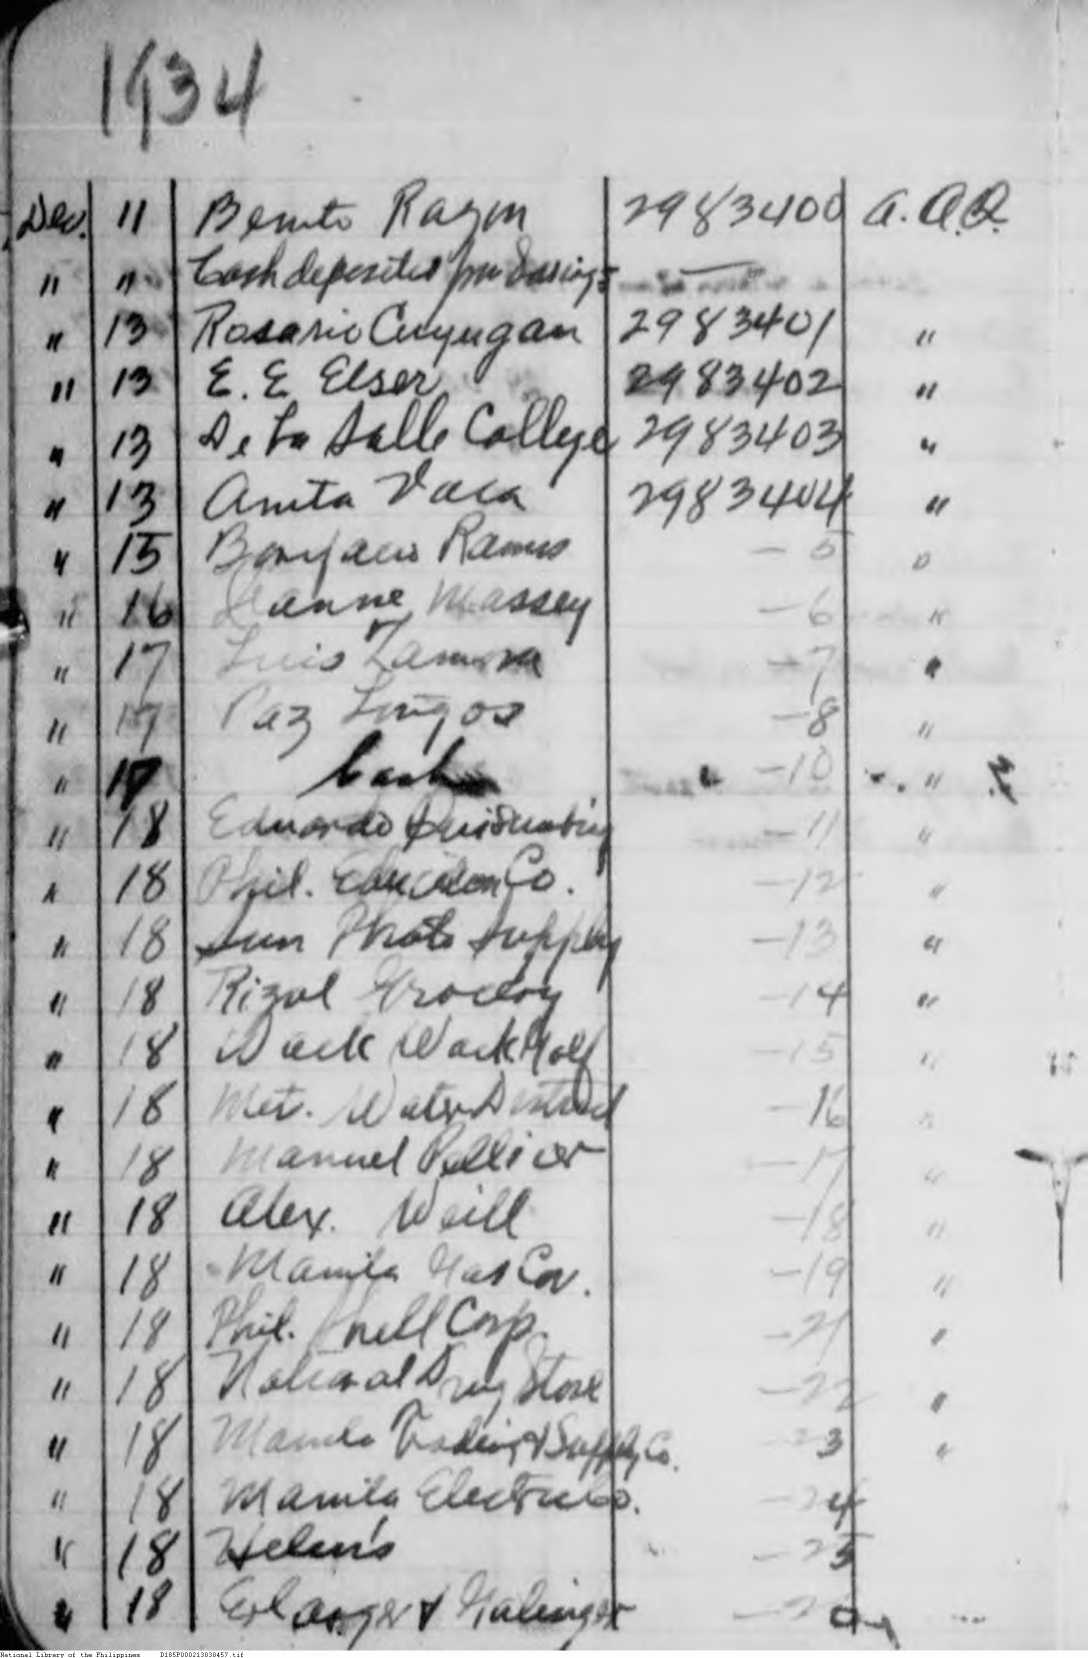 1934
Dec. 11 Benito Razon 2983400 A. A. Q.
" " Cash deposited from Savings —
" 13 Rosario Cuyugan 2983401 "
" 13 E. E Elser 2983402 "
" 13 De La Salle College 2983403 "
" 13 Anita Vaca 2983404 "
" 15 Bonifacio Ramos - 5 "
" 16 Jeanne Massey - 6 "
" 17 Luis Zamora - 7 "
" 17 Paz Longos - 8 "
" 17 Cash - 10 "
" 18 Eduardo Quisumbing - 11 "
" 18 Phil. Education Co. - 12 "
" 18 Sun Photo Supply - 13 "
" 18 Rizal Grocery - 14 "
" 18 Wack Wack Golf - 15 "
" 18 Met. Water District - 16 "
" 18 Manuel Pellicer - 17 "
" 18 Alex. Weill - 18 "
" 18 Manila Gas Cor. - 19 "
" 18 Phil. Shell Corp. - 21 "
" 18 National Drug Store - 22 "
" 18 Manila Trading & Supply Co. - 23 "
" 18 Manila Electric Co. - 24
" 18 Helen's - 25
" 18 Erlanger & Galinger
National Library of the Philippines D185P000213838457.tif